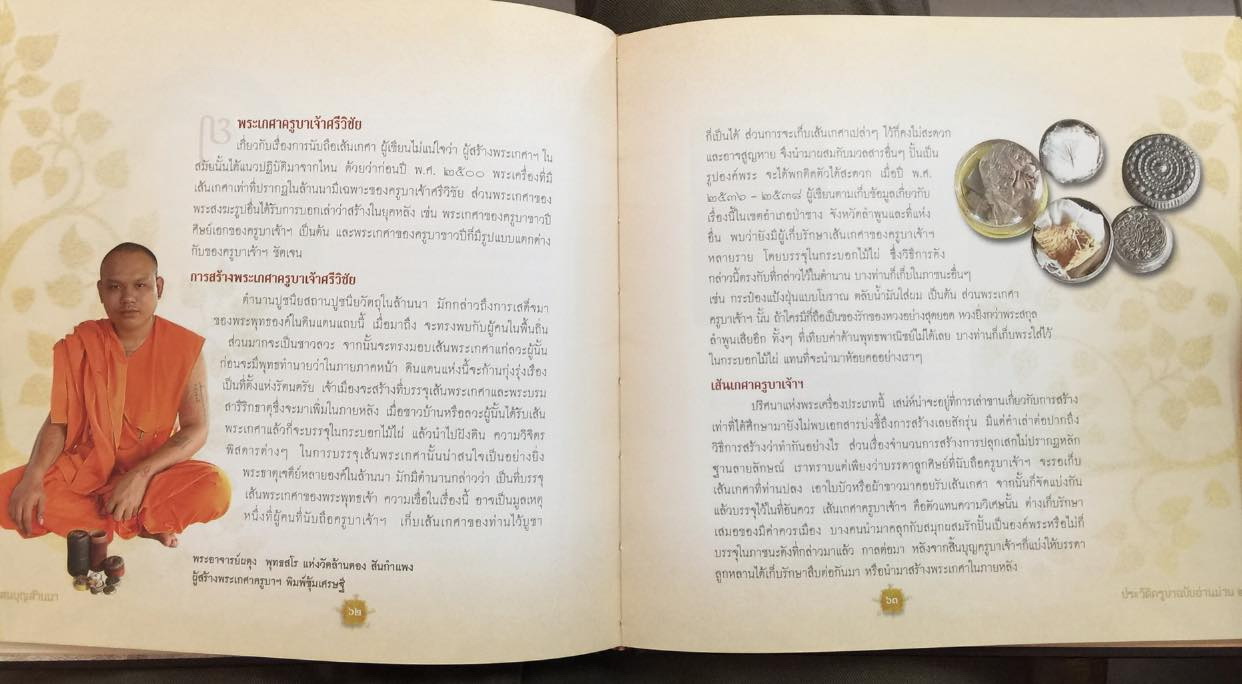 พระเกศาครูบาเจ้าศรีวิชัย
เกี่ยวกับเรื่องการนับถือเส้นเกศา ผู้เขียนไม่แน่ใจว่า ผู้สร้างพระเกศาฯ ใน
สมัยนั้นได้แนวปฏิบัติมาจากไหน ด้วยว่าก่อนปี พ.ศ. ๒๕๐๐ พระเครื่องที่มี
เส้นเกศาเท่าที่ปรากฏในล้านนามีเฉพาะของครูบาเจ้าศรีวิชัย ส่วนพระเกศาของ
พระสงฆะรูปอื่นได้รับการบอกเล่าว่าสร้างในยุคหลัง เช่น พระเกศาของครูบาขาวปี
ศิษย์เอกของครูบาเจ้าฯ เป็นต้น และพระเกศาของครูบาขาวปีก็มีรูปแบบแตกต่าง
กับของครูบาเจ้าฯ ชัดเจน
การสร้างพระเกศาครูบาเจ้าศรีวิชัย
ตำนานปูชนียสถานปูชนียวัตถุในล้านนา มักกล่าวถึงการเสด็จมา
ของพระพุทธองค์ในดินแดนแถบนี้ เมื่อมาถึง จะทรงพบกับผู้คนในพื้นถิ่น
ส่วนมากจะเป็นชาวลวะ จากนั้นจะทรงมอบเส้นพระเกศาแก่ลวะผู้นั้น
ก่อนจะมีพุทธทำนายว่าในภายภาคหน้า ดินแดนแห่งนี้จะก้านกุ่งรุ่งเรือง
เป็นที่ตั้งแห่งรัตนตรัย เจ้าเมืองจะสร้างที่บรรจุเส้นพระเกศาและพระบรม
สารีริกธาตุซึ่งจะมาเพิ่มในภายหลัง เมื่อชาวบ้านหรือลวะผู้นั้นได้รับเส้น
พระเกศาแล้วก็จะบรรจุในกระบอกไม้ไผ่ แล้วนำไปฝังดิน ความวิจิตร
พิสดารต่างๆ ในการบรรจุเส้นพระเกศานั้นน่าสนใจเป็นอย่างยิ่ง
พระธาตุเจดีย์หลายองค์ในล้านนา มักมีตำนานกล่าวว่า เป็นที่บรรจุ
เส้นพระเกศาของพระพุทธเจ้า ความเชื่อในเรื่องนี้ อาจเป็นมูลเหตุ
หนึ่งที่ผู้คนที่นับถือครูบาเจ้าฯ เก็บเส้นเกศาของท่านไว้บูชา
พระอาจารย์ผดุง พุทธสโร แห่งวัดล้านตอง สันกำแพง
ผู้สร้างพระเกศาครูบาฯ พิมพ์ซุ้มเศรษฐี
สนบุญล้านนา
๖๒
ก็เป็นได้ ส่วนการจะเก็บเส้นเกศาเปล่าๆ ไว้ก็คงไม่สะดวก
และอาจสูญหาย จึงนำมาผสมกับมวลสารอื่นๆ ปั้นเป็น
รูปองค์พระ จะได้พกติดตัวได้สะดวก เมื่อปี พ.ศ.
๒๕๓๖ - ๒๕๓๘ ผู้เขียนตามเก็บข้อมูลเกี่ยวกับ
เรื่องนี้ในเขตอำเภอป่าซาง จังหวัดลำพูนและที่แห่ง
อื่น พบว่ายังมีผู้เก็บรักษาเส้นเกศาของครูบาเจ้าฯ
หลายราย โดยบรรจุในกระบอกไม้ไผ่ ซึ่งวิธีการดัง
กล่าวนี้ตรงกับที่กล่าวไว้ในตำนาน บางท่านก็เก็บในภาชนะอื่นๆ
เช่น กระป๋องแป้งฝุ่นแบบโบราณ ตลับน้ำมันใส่ผม เป็นต้น ส่วนพระเกศา
ครูบาเจ้าฯ นั้น ถ้าใครมีก็ถือเป็นของรักของหวงอย่างสุดยอด หวงยิ่งกว่าพระสกุล
ลำพูนเสียอีก ทั้งๆ ที่เทียบค่าด้านพุทธพาณิชย์ไม่ได้เลย บางท่านก็เก็บพระใส่ไว้
ในกระบอกไม้ไผ่ แทนที่จะนำมาห้อยคออย่างเราๆ
เส้นเกศาครูบาเจ้าฯ
ปริศนาแห่งพระเครื่องประเภทนี้ เสน่ห์น่าจะอยู่ที่การเล่าขานเกี่ยวกับการสร้าง
เท่าที่ได้ศึกษามายังไม่พบเอกสารบ่งชี้ถึงการสร้างเลยสักรุ่น มีแต่คำเล่าต่อปากถึง
วิธีการสร้างว่าทำกันอย่างไร ส่วนเรื่องจำนวนการสร้างการปลุกเสกไม่ปรากฏหลัก
ฐานลายลักษณ์ เราทราบแต่เพียงว่าบรรดาลูกศิษย์ที่นับถือครูบาเจ้าฯ จะรอเก็บ
เส้นเกศาที่ท่านปลง เอาใบบัวหรือผ้าขาวมาคอยรับเส้นเกศา จากนั้นก็จัดแบ่งกัน
แล้วบรรจุไว้ในที่อันควร เส้นเกศาครูบาเจ้าฯ คือตัวแทนความวิเศษนั้น ต่างเก็บรักษา
เสมอของมีค่าควรเมือง บางคนนำมาคลุกกับสมุกผสมรักปั้นเป็นองค์พระหรือไม่ก็
บรรจุในภาชนะดังที่กล่าวมาแล้ว กาลต่อมา หลังจากสิ้นบุญครูบาเจ้าฯก็แบ่งให้บรรดา
ลูกหลานได้เก็บรักษาสืบต่อกันมา หรือนำมาสร้างพระเกศาในภายหลัง
๖๓
ประวัติครูบาฉบับอ่านม่วน